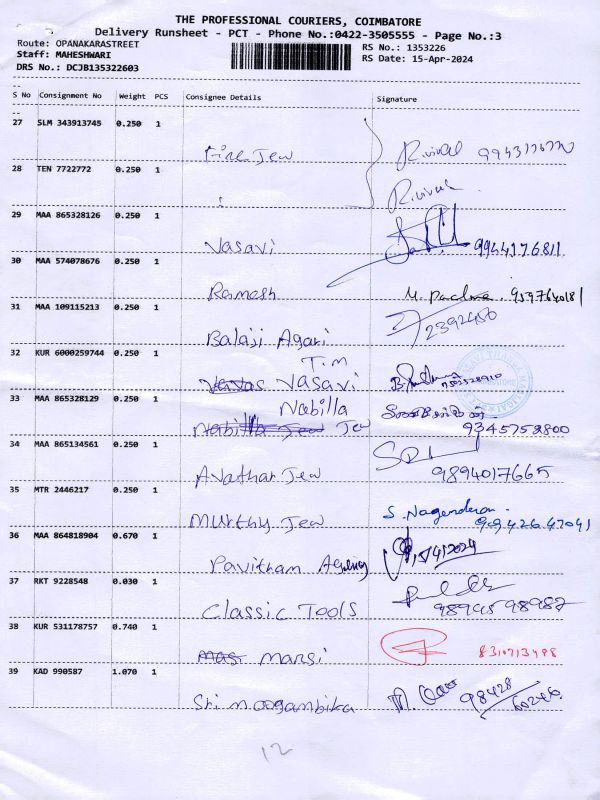 THE PROFESSIONAL COURIERS, COIMBATORE
Delivery Runsheet - PCT - Phone No.:0422-3505555 - Page No.:3
Route: OPANAKARASTREET
Staff: MAHESHWARI
DRS No.: DCJB135322603
RS No.: 1353226
RS Date: 15-Apr-2024
S No Consignment No Weight PCS Consignee Details Signature
27 SLM 343913745 0.250 1
Fine Jew
28 TEN 7722772 0.250 1
29 MAA 865328126 0.250 1
Vasavi 9944176811
30 MAA 574078676 0.250 1
Ramesh M. Padma
31 MAA 109115213 0.250 1
Balaji Agari 2392450
32 KUR 6000259744 0.250 1
Tim
Vasavi
33 MAA 865328129 0.250 1
Nabilla
Jew 9345752800
34 MAA 865134561 0.250 1
Avathar Jew 9894017665
35 MTR 2446217 0.250 1
Murthy Jew S. Nagendran
909426.47041
36 MAA 864818904 0.670 1
Pavitham 15/4/2024
37 RKT 9228548 0.030 1
Classic Tools 9894598987
38 KUR 531178757 0.740 1
Mansi 8310713498
39 KAD 990587 1.070 1
Sri Moogambika 98428
60246
12